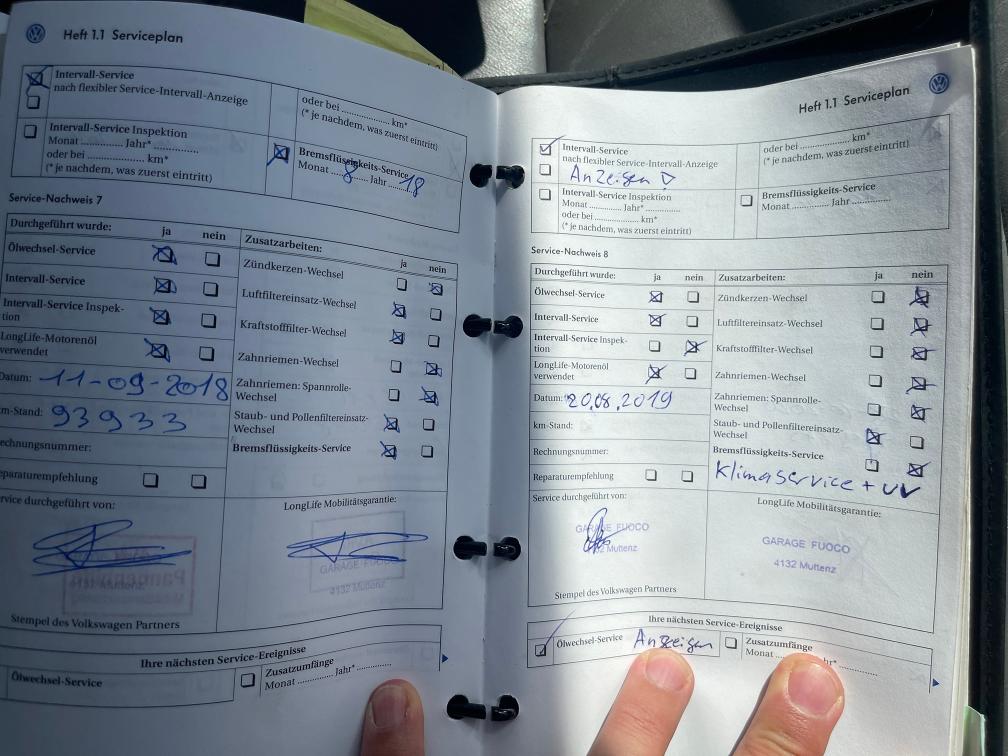 Heft 1.1 Serviceplan
Intervall-Service
nach flexibler Service-Intervall-Anzeige
oder bei .................... km*
(* je nachdem, was zuerst eintritt)
Intervall-Service Inspektion
Monat ............ Jahr* ..................
oder bei .................... km*
(* je nachdem, was zuerst eintritt)
Bremsflüssigkeits-Service
Monat ...8... Jahr ...18
Service-Nachweis 7
Durchgeführt wurde: ja nein
Ölwechsel-Service
Intervall-Service
Intervall-Service Inspek-
tion
LongLife-Motorenöl
verwendet
Datum: 11-09-2018
km-Stand: 93933
Rechnungsnummer:
Reparaturempfehlung
Zusatzarbeiten: ja nein
Zündkerzen-Wechsel
Luftfiltereinsatz-Wechsel
Kraftstofffilter-Wechsel
Zahnriemen-Wechsel
Zahnriemen: Spannrolle-
Wechsel
Staub- und Pollenfiltereinsatz-
Wechsel
Bremsflüssigkeits-Service
Service durchgeführt von:
LongLife Mobilitätsgarantie:
GARAGE FUOCO
4132 Muttenz
Stempel des Volkswagen Partners
Ihre nächsten Service-Ereignisse
Ölwechsel-Service
Zusatzumfänge
Monat ............ Jahr* ..................
Heft 1.1 Serviceplan
Intervall-Service
nach flexibler Service-Intervall-Anzeige
Anzeigen
oder bei .................... km*
(* je nachdem, was zuerst eintritt)
Intervall-Service Inspektion
Monat ............ Jahr* ..................
oder bei .................... km*
(* je nachdem, was zuerst eintritt)
Bremsflüssigkeits-Service
Monat ............ Jahr ..................
Service-Nachweis 8
Durchgeführt wurde: ja nein
Ölwechsel-Service
Intervall-Service
Intervall-Service Inspek-
tion
LongLife-Motorenöl
verwendet
Datum: 20.08.2019
km-Stand:
Rechnungsnummer:
Reparaturempfehlung
Zusatzarbeiten: ja nein
Zündkerzen-Wechsel
Luftfiltereinsatz-Wechsel
Kraftstofffilter-Wechsel
Zahnriemen-Wechsel
Zahnriemen: Spannrolle-
Wechsel
Staub- und Pollenfiltereinsatz-
Wechsel
Bremsflüssigkeits-Service
Klimaservice + UV
Service durchgeführt von:
GARAGE FUOCO
Muttenz
Stempel des Volkswagen Partners
LongLife Mobilitätsgarantie:
GARAGE FUOCO
4132 Muttenz
Ihre nächsten Service-Ereignisse
Ölwechsel-Service Anzeigen
Zusatzumfänge
Monat ............ Jahr* ..................